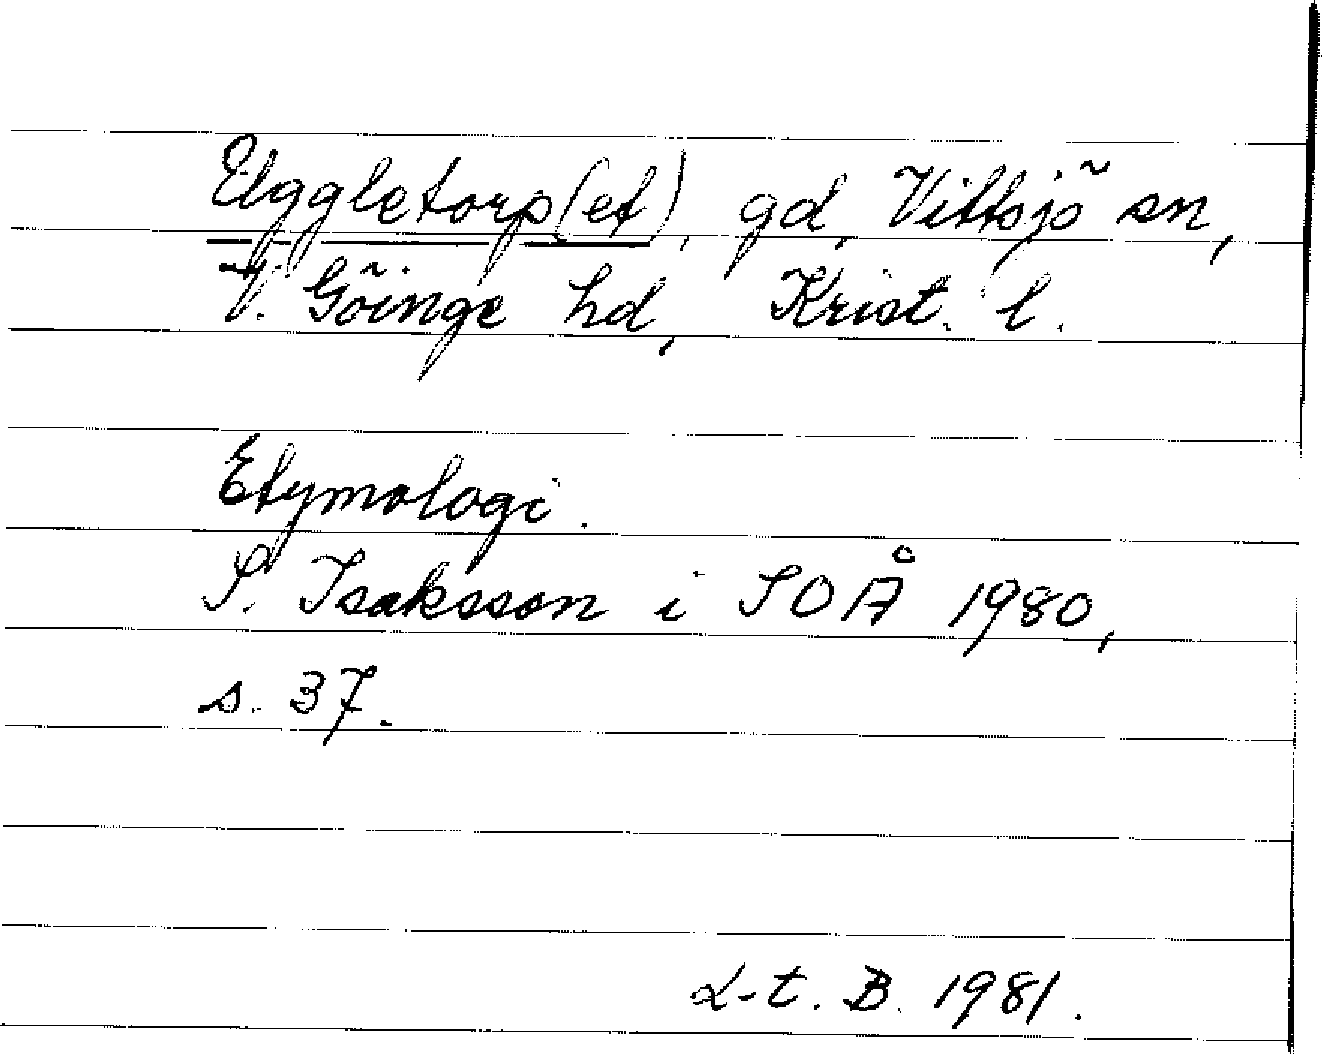 Elggletorp(et), gd, Vittsjö sn,
V. Göinge hd, Krist. l.
Etymologi.
S. Isaksson i SOÅ 1980,
s. 37.
L-t. B. 1981.